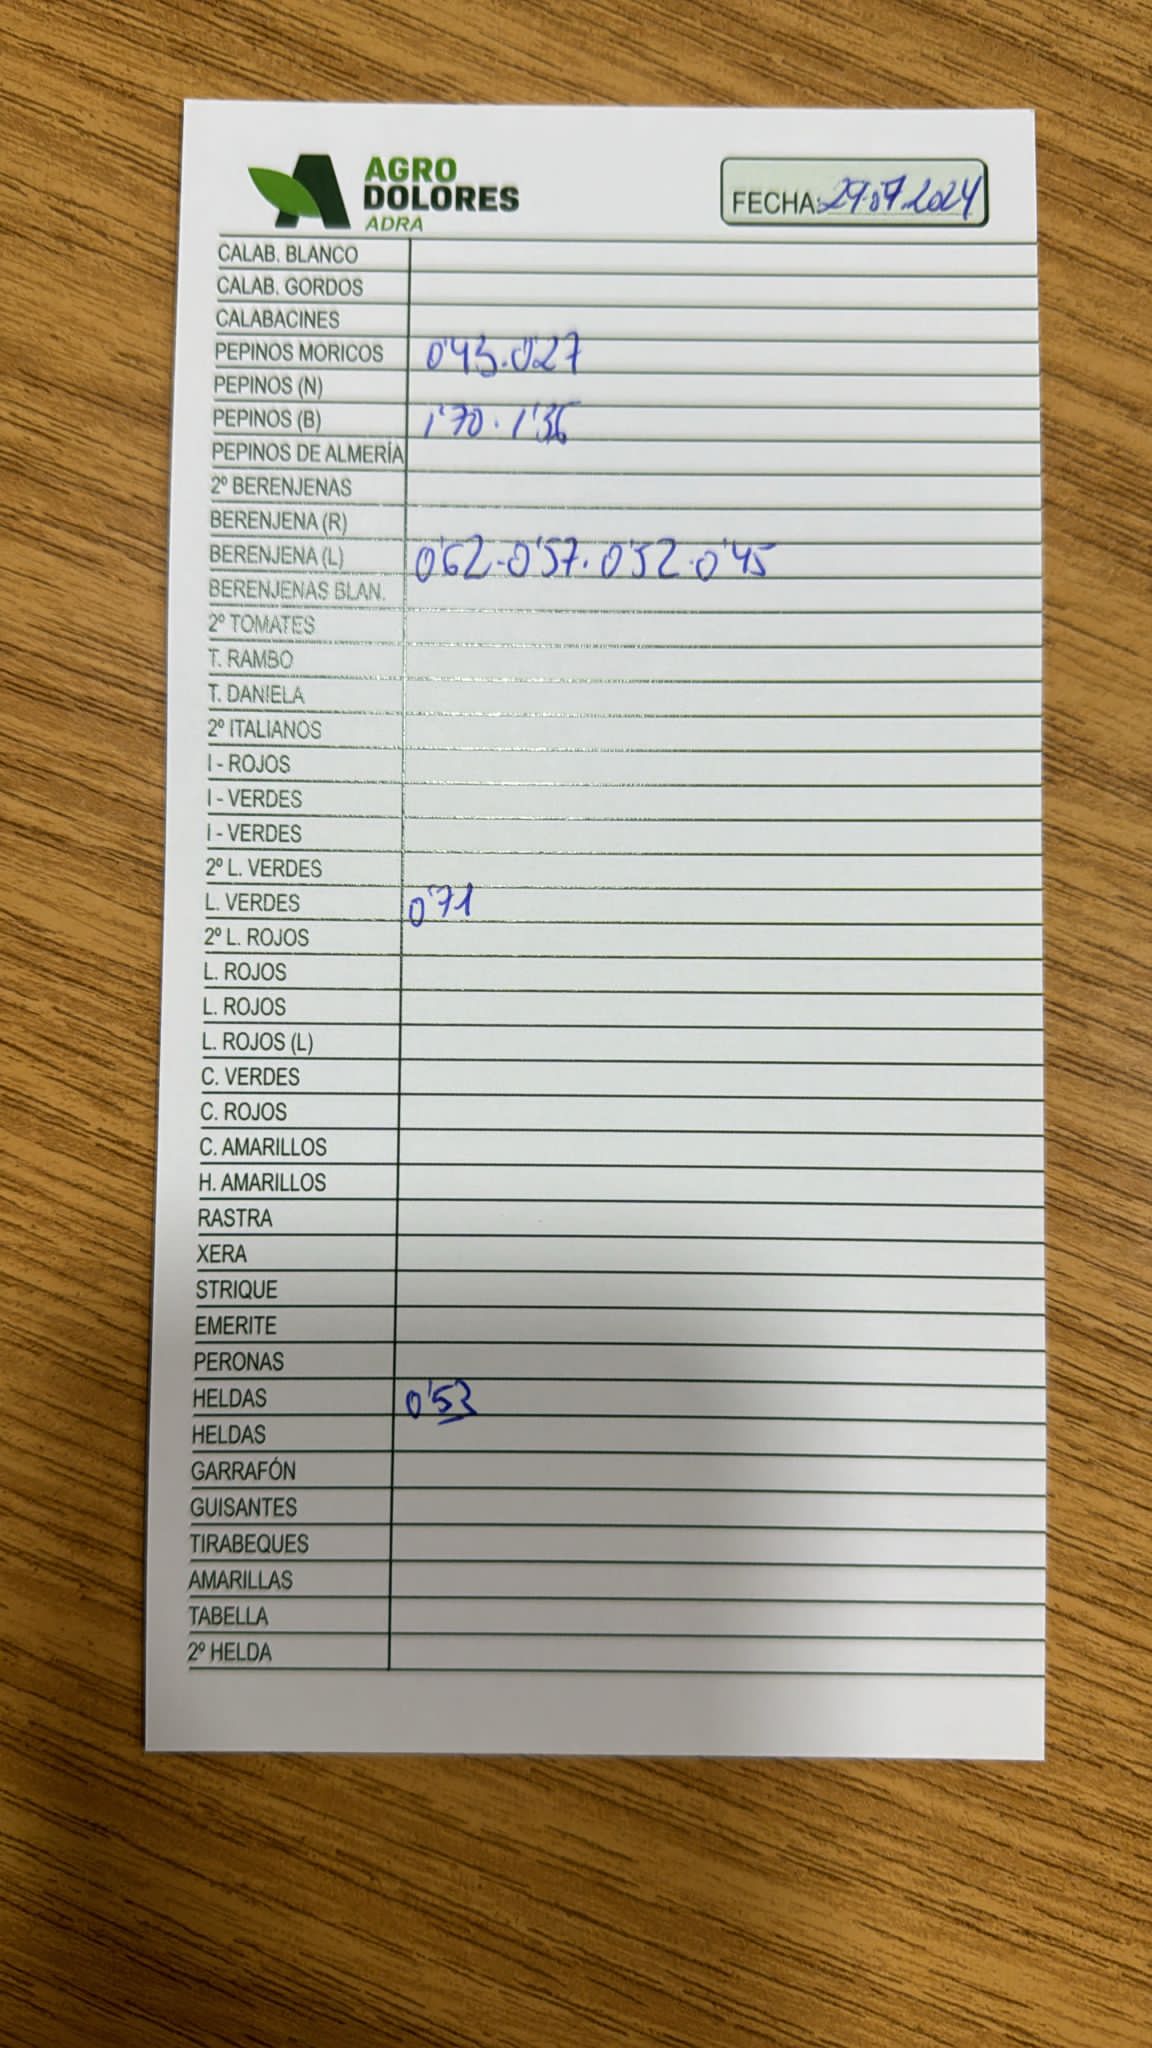 AGRO
DOLORES
ADRA
FECHA: 29.07.2024
CALAB. BLANCO
CALAB. GORDOS
CALABACINES
PEPINOS MORICOS 0'43.0'27
PEPINOS (N)
PEPINOS (B) 1'70.1'36
PEPINOS DE ALMERÍA
2º BERENJENAS
BERENJENA (R)
BERENJENA (L) 0'62-0'57.0'52.0'45
BERENJENAS BLAN.
2º TOMATES
T. RAMBO
T. DANIELA
2º ITALIANOS
I - ROJOS
I - VERDES
I - VERDES
2º L. VERDES
L. VERDES 0'71
2º L. ROJOS
L. ROJOS
L. ROJOS
L. ROJOS (L)
C. VERDES
C. ROJOS
C. AMARILLOS
H. AMARILLOS
RASTRA
XERA
STRIQUE
EMERITE
PERONAS
HELDAS 0'53
HELDAS
GARRAFÓN
GUISANTES
TIRABEQUES
AMARILLAS
TABELLA
2º HELDA